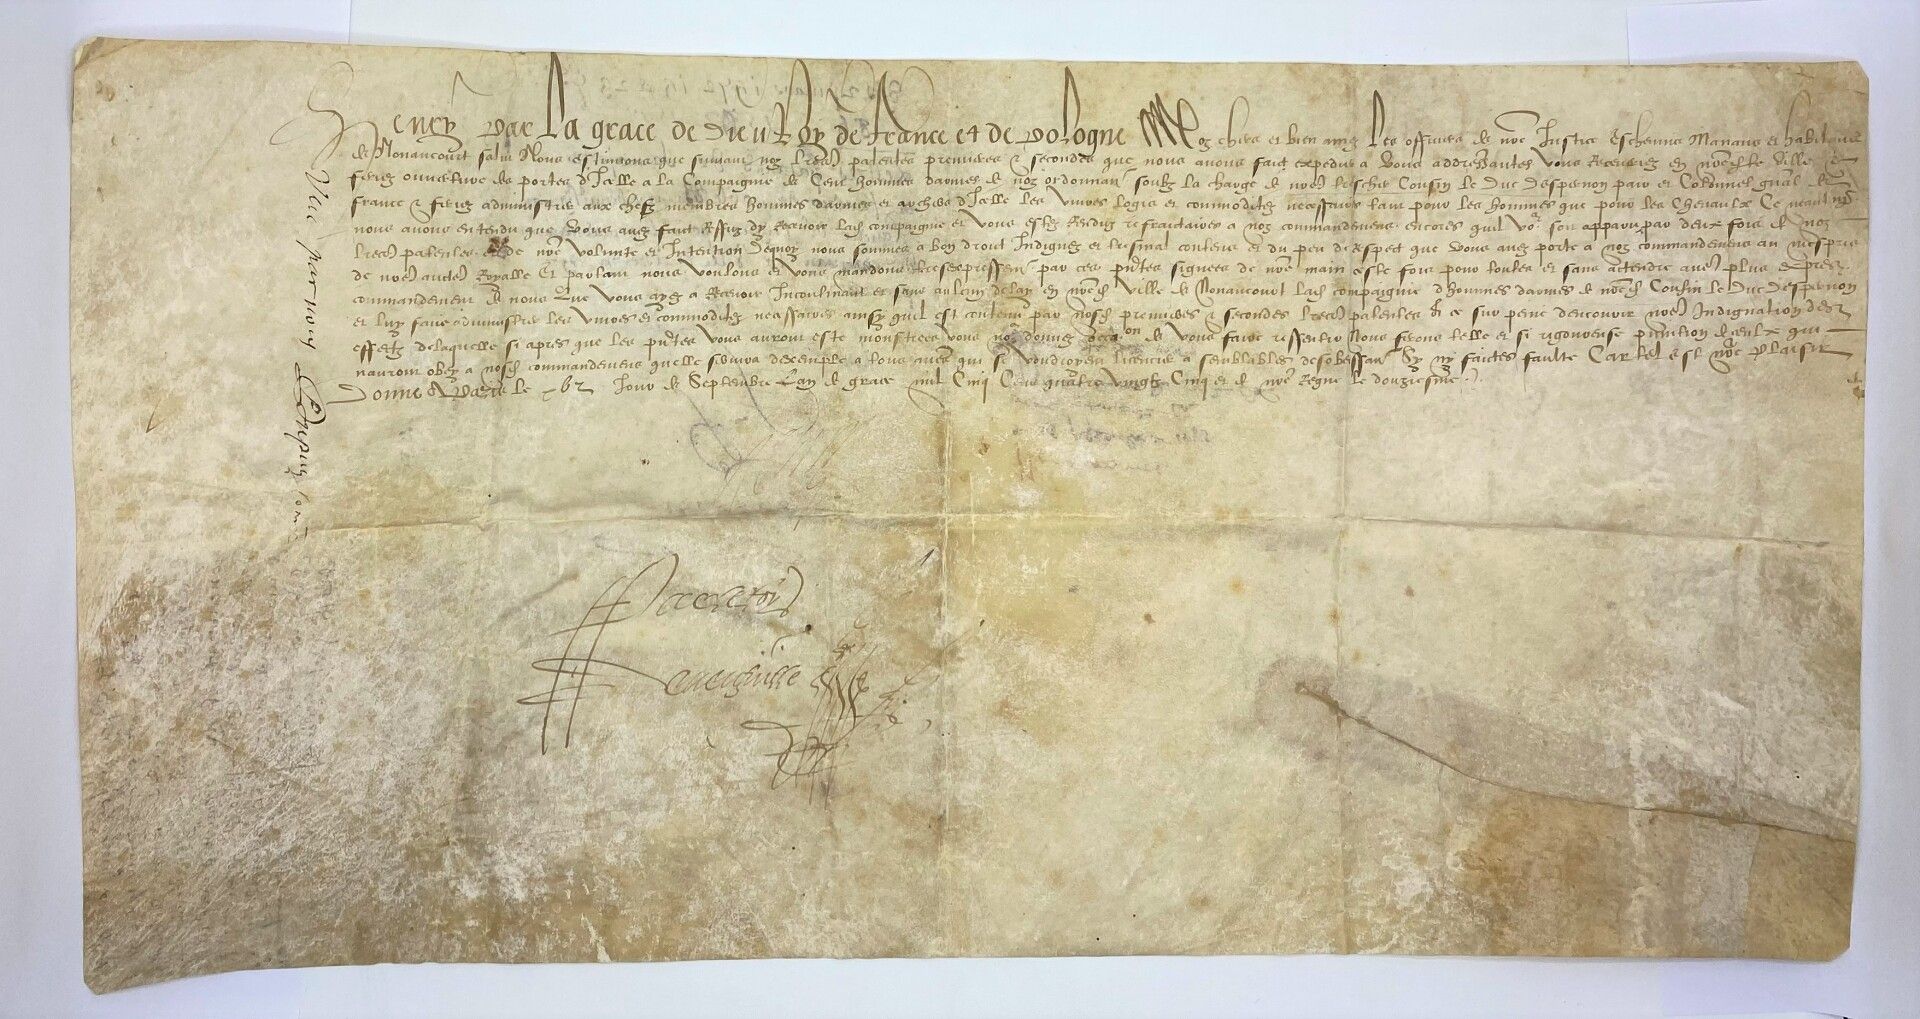 Henry par La grace de Dieu Roy de france et de pologne Noz chers et bien amez Les officiers de nre Justice Eschevins Manans et habitans
de Nonancourt salut Nous estimions que suivant noz lres patentes premieres & secondes que nous avons fait expedier a vous addressantes vous Recevriez en nre ville &
feriez ouverture des portes d'Icelle a la Compaignie de Cent hommes darmes de noz ordonnan soubz la charge de nre trescher Cousin le Duc Despernon pair et Colonnel gnal de
france & feriez administrer aux chefz membres hommes darmes et archers d'Icelle les vivres logis et commoditez necessaires tant pour les hommes que pour les Chevaulx Ce neant
nous avons entendu que vous avez fait Reffuz dy Recevoir lad compaignie et vous estes Renduz refractaires a noz commandemens encores quil vo soit apparu par deux fois de noz
lres patentes et de nre volunte et Intention Dequoy nous sommes a bon droit Indignez et tresmal contens et du peu de respect que vous avez porte a noz commandemens au mespris
de nre aucte Royalle Et partant nous voulons et vous mandons tresexpressem par ces pntes signees de nre main ceste fois pour toutes et sans actendre aucun plus expres
commandement de nous Que vous ayez a Recevoir Incontinant et sans aulcun delay en nred ville de Nonancourt lad compaignie d'hommes darmes de nred Cousin le Duc Despernon
et luy faire administrer les vivres et commoditez necessaires ainsy quil est contenu par nosd premieres & secondes lres patentes Et ce sur peine dencourir nre Indignation des
effectz de laquelle si apres que les pntes vous auront este monstrees vous nous donnez occaon de vous faire ressentir Nous ferons telle et si rigoureuse punition de ceulx qui
nauront obey a nosd commandemens quelle servira dexemple a tous autres qui se vouldroyent licencier a semblables desobeissan Sy ny faictes faulte Car tel est nre plaisir
Donne a Paris le Jour de Septembre Lan de grace mil Cinq Cens quatre vingtz Cinq et de nre Regne le douziesme
Veu par moy
Par le roy